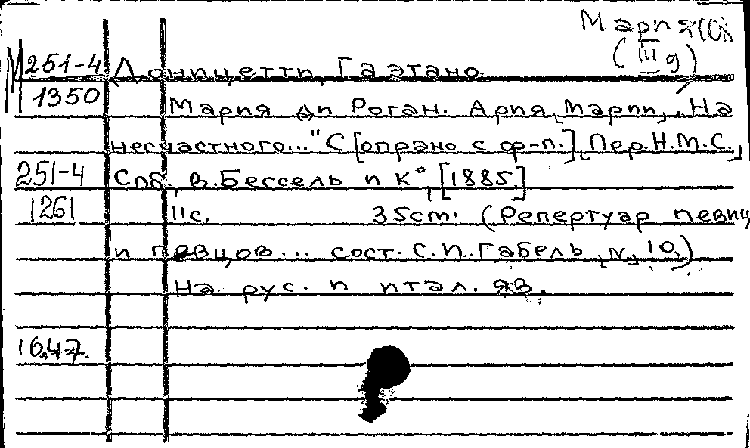 Мария (О
(III д)
251-4 Доницетти, Гаэтано
1350 Мария ди Роган. Ария Марии, "На
несчастного..." С [опрано с ф-п.], Пер. Н.М.С.,
251-4 Спб, В. Бессель и К°, [1885]
1261 11с. 35cm. (Репертуар певиц
и певцов... сост. С.И. Габель, N, 10,)
На рус. и итал. яз.
1647.